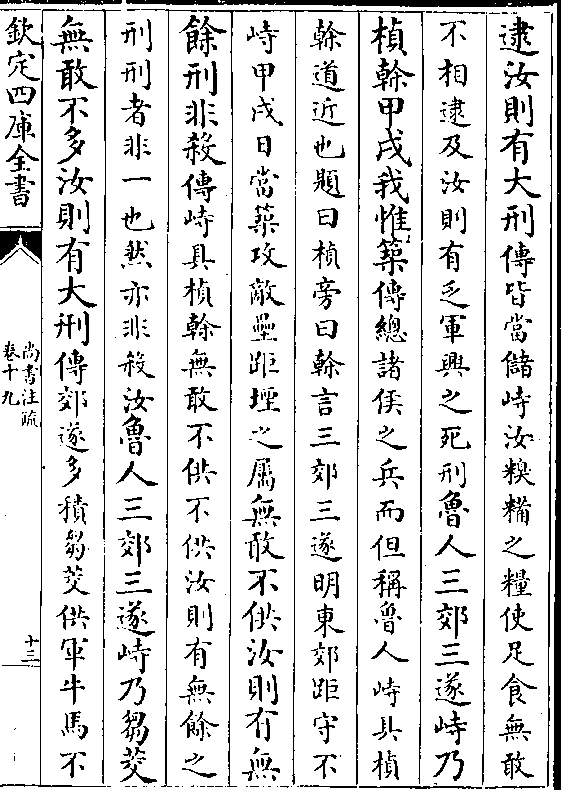 逮汝則有大刑傳皆當儲峙汝糗糒之糧使足食無敢
不相逮及汝則有乏軍興之死刑魯人三郊三遂峙乃
楨榦甲戌我惟築傳總諸侯之兵而但稱魯人峙具楨
榦道近也題曰楨旁曰榦言三郊三遂明東郊距守不
峙甲戌日當築攻敵壘距堙之屬無敢不供汝則有無
餘刑非殺傳峙具楨榦無敢不供不供汝則有無餘之
刑刑者非一也然亦非殺汝魯人三郊三遂峙乃芻茭
無敢不多汝則有大刑傳郊遂多積芻茭供軍牛馬不
欽定四庫全書
尚書注疏
卷十九
十三